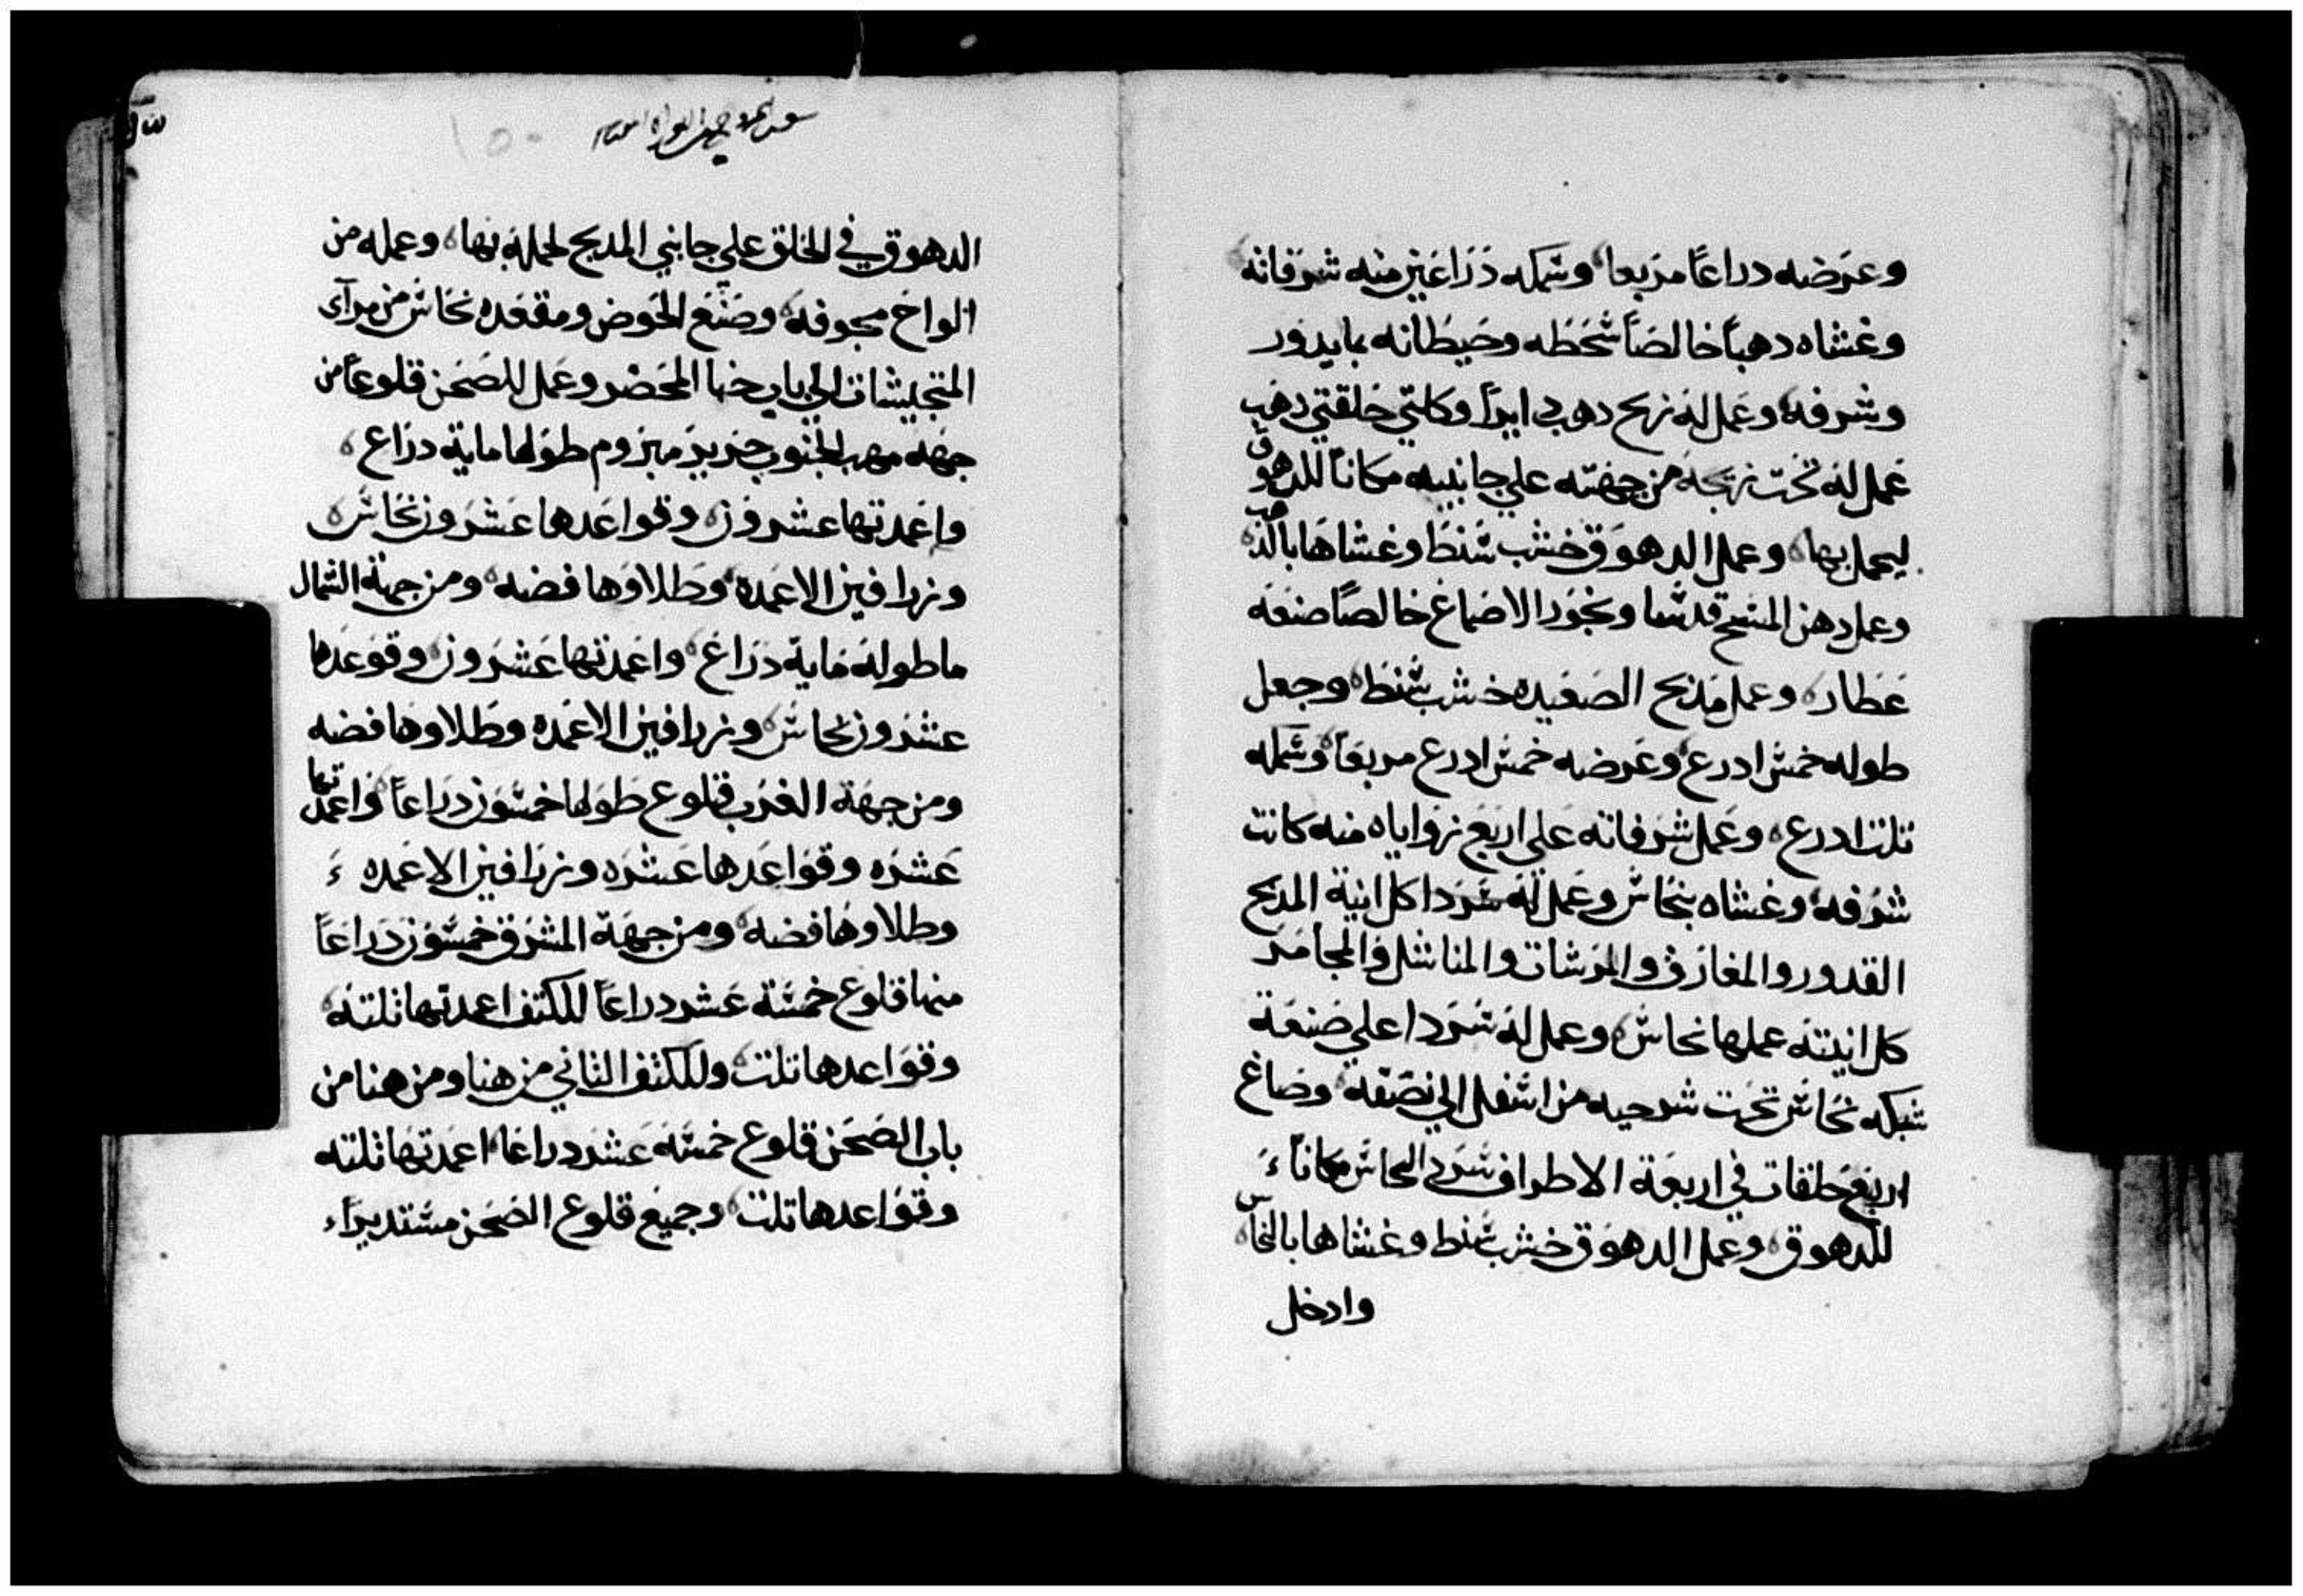 وعرضه دراعًا مربعا وسمكه دراعين منه شرفاته
وغشاه دهباً خالصاً سطحه وحيطانه بما يدور
وشرفه وعمل له زيح دهب دايراً وكلتي حلقتي دهب
عمل له تحت زيجه من جهته علي جانبيه مكاناً للدهوق
ليحمل بها وعمل الدهوق خشب سنط وغشاها بالذهب
وعمل دهن المسح قدسا وبخور الاصماغ خالصاً صنعه
عطار وعمل مذبح الصعيده خشب سنط وجعل
طوله خمس ادرع وعرضه خمس ادرع مربعاً وسمكه
تلت ادرع وعمل شرفاته علي اربع زواياه منه كانت
شرفه وغشاه بنحاس وعمل له سردا كل انية المدبح
القدور والمغارف والمرشات والمناشل والمجامر
كل انيته عملها نحاس وعمل له سردا علي صنعة
شبكه نحاس تحت سرحيه من اسفل الي نصفه وصاغ
اربع حلقات في اربعة الاطراف لسرد النحاس مكاناً
للدهوق وعمل الدهوق خشب سنط وغشاها بالنحاس
وادخل
الدهوق في الحلق علي جانبي المدبح لحمله بها وعمله من
الواح مجوفه وصنع الحوض ومقعده نحاس من مرآي
المتجيشات الي باب خبا المحضر وعمل للصحن قلوعاً من
جهة مهب الجنوب جنريز مبزوم طولها ماية دراع
واعمدتها عشرون وقواعدها عشرون نحاس
وزرافين الاعمدة وطلاوها فضه ومن جهة الشمال
ما طوله ماية دراع واعمدتها عشرون وقوعدها
عشرون نحاس وزرافين الاعمده وطلاوها فضه
ومن جهة الغرب قلوع طولها خمسون دراعاً واعمدتها
عشره وقواعدها عشره وزرافين الاعمده
وطلاوها فضه ومن جهة المشرق خمسون دراعاً
منها قلوع خمسة عشر دراعاً للكتف اعمدتها ثلثه
وقواعدها تلت وللكتف الثاني من هنا ومن هنا من
باب الصحن قلوع خمسه عشر دراعا اعمدتها ثلثه
وقواعدها تلت وجميع قلوع الصحن مستديراً